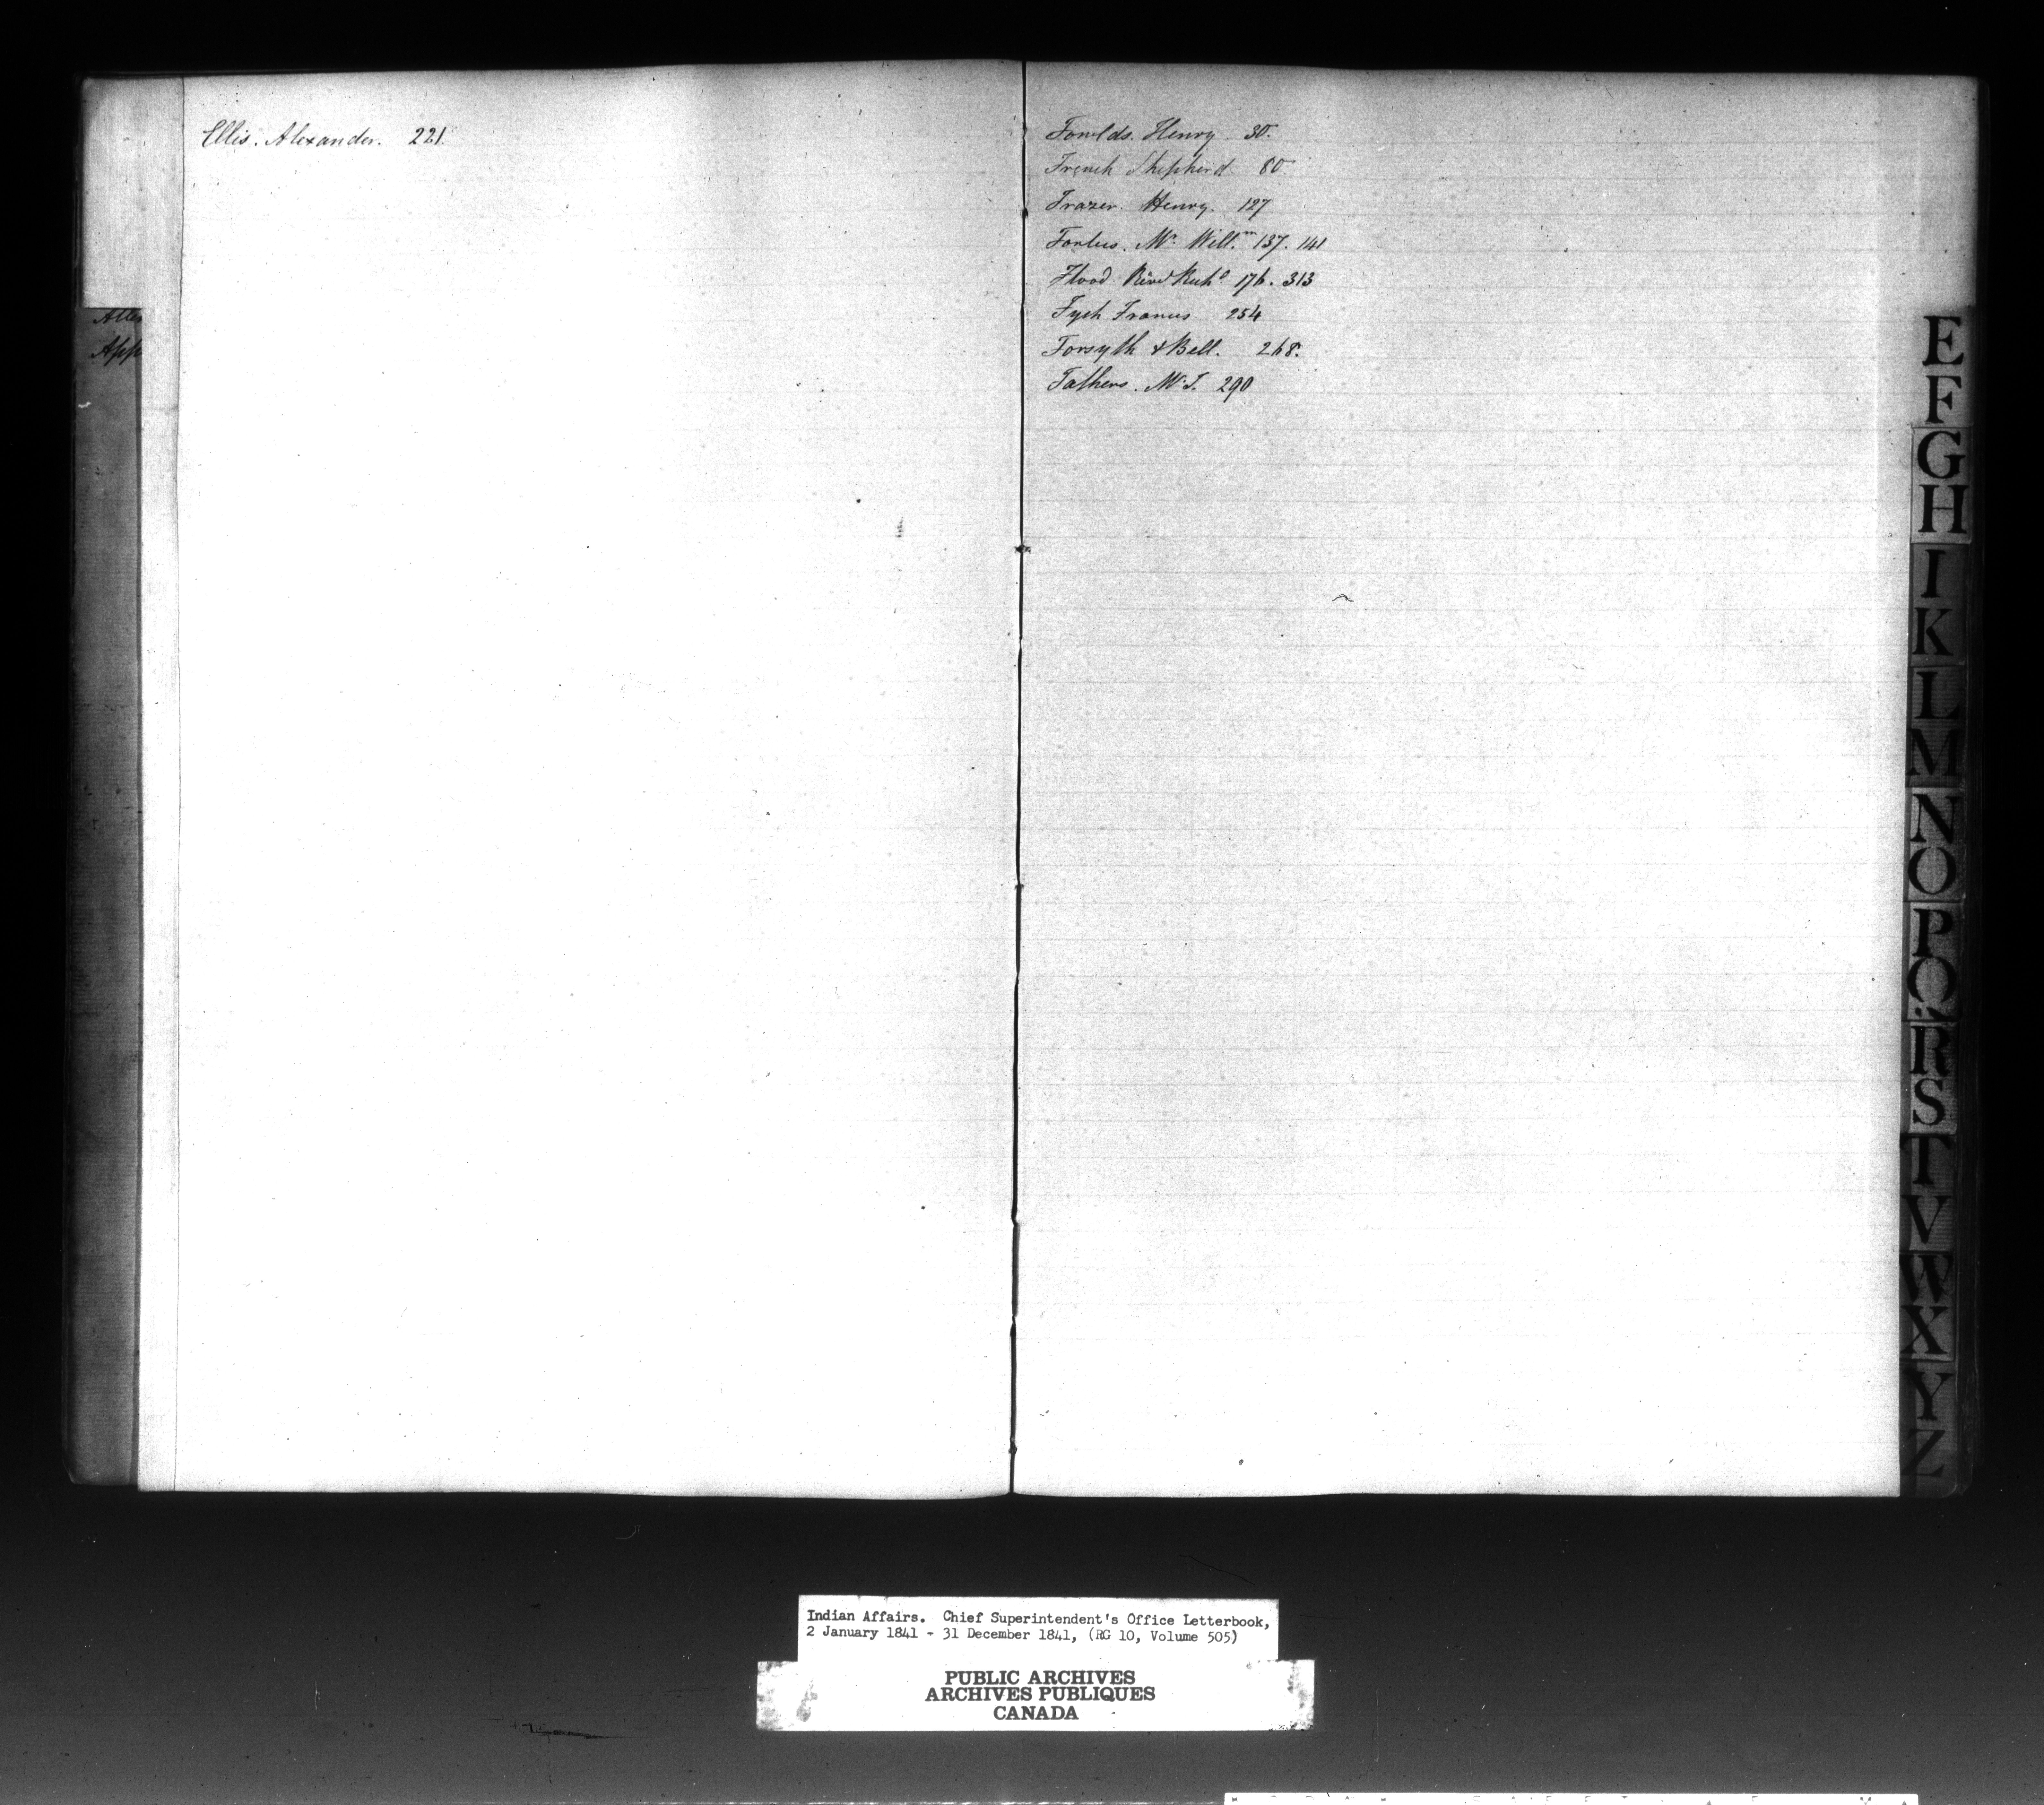 Ellis. Alexander. 221.
Alle
App
Fowlds. Henry 30.
French Shepherd. 80
Frazer. Henry. 127
Forbes. Mr. Will.m 137. 141
Flood Revd Richd 176. 313
Fych Francis 254
Forsyth & Bell. 268.
Fathers. Mr. J. 290
E
F
G
H
I
K
L
M
N
O
P
Q
R
S
T
V
W
X
Y
Z
Indian Affairs. Chief Superintendent's Office Letterbook,
2 January 1841 - 31 December 1841, (RG 10, Volume 505)
PUBLIC ARCHIVES
ARCHIVES PUBLIQUES
CANADA